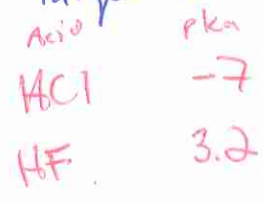 Acid pka
HCl -7
HF 3.2